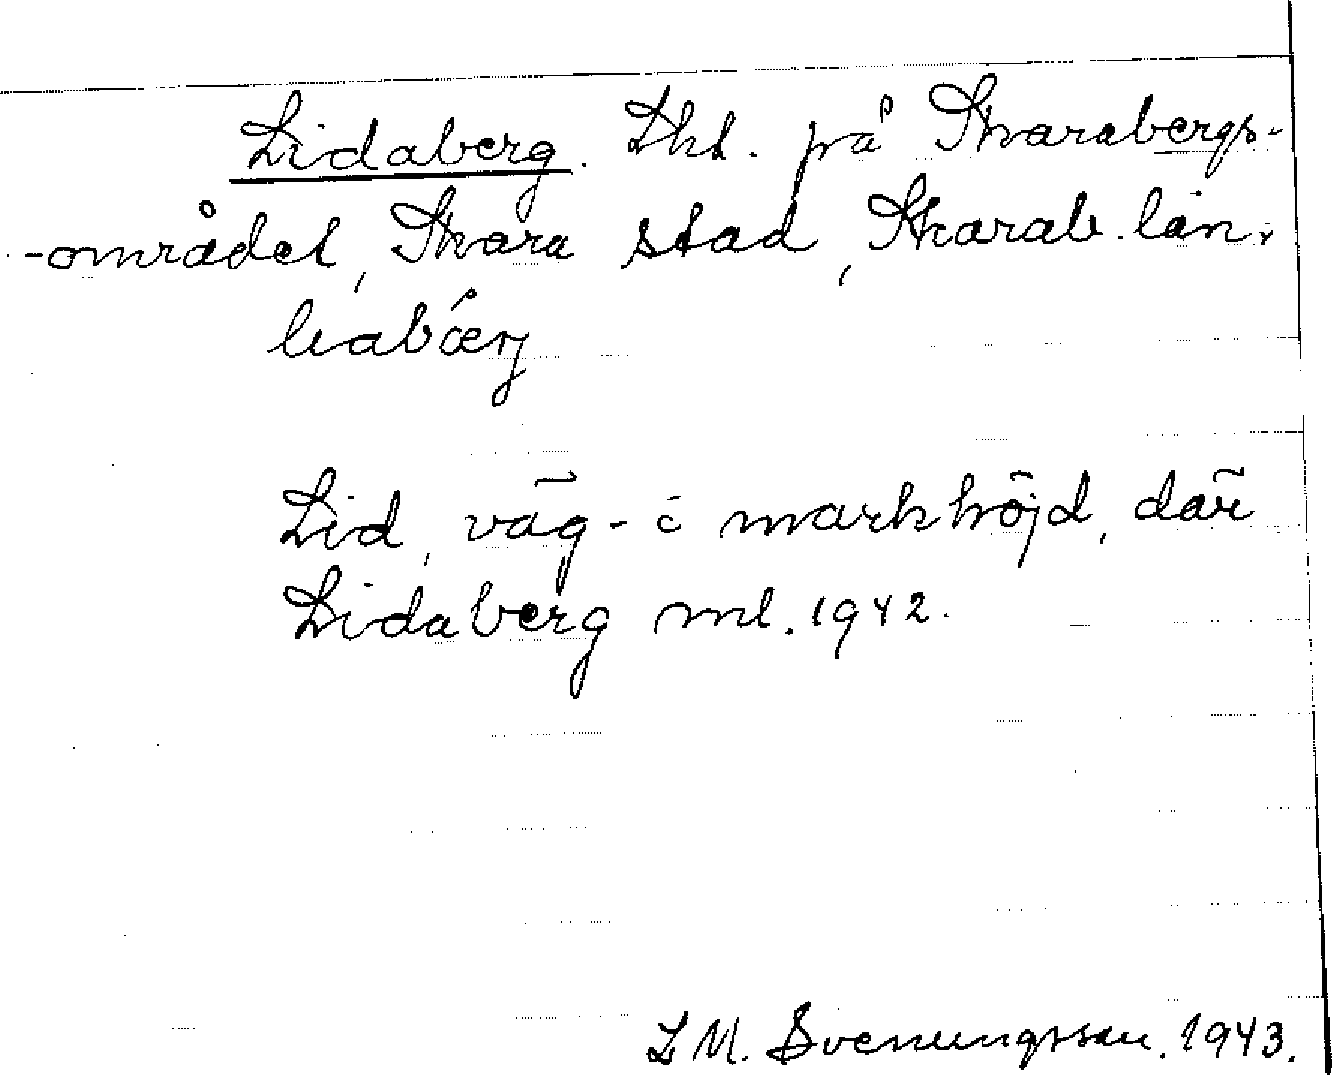 Lidaberg. Lht. på Skarabergs-
-området, Skara stad, Skarab. län.
liabærj
Lid, väg- i markhöjd, där
Lidaberg ml. 1942.
L M. Svenungsson. 1943.